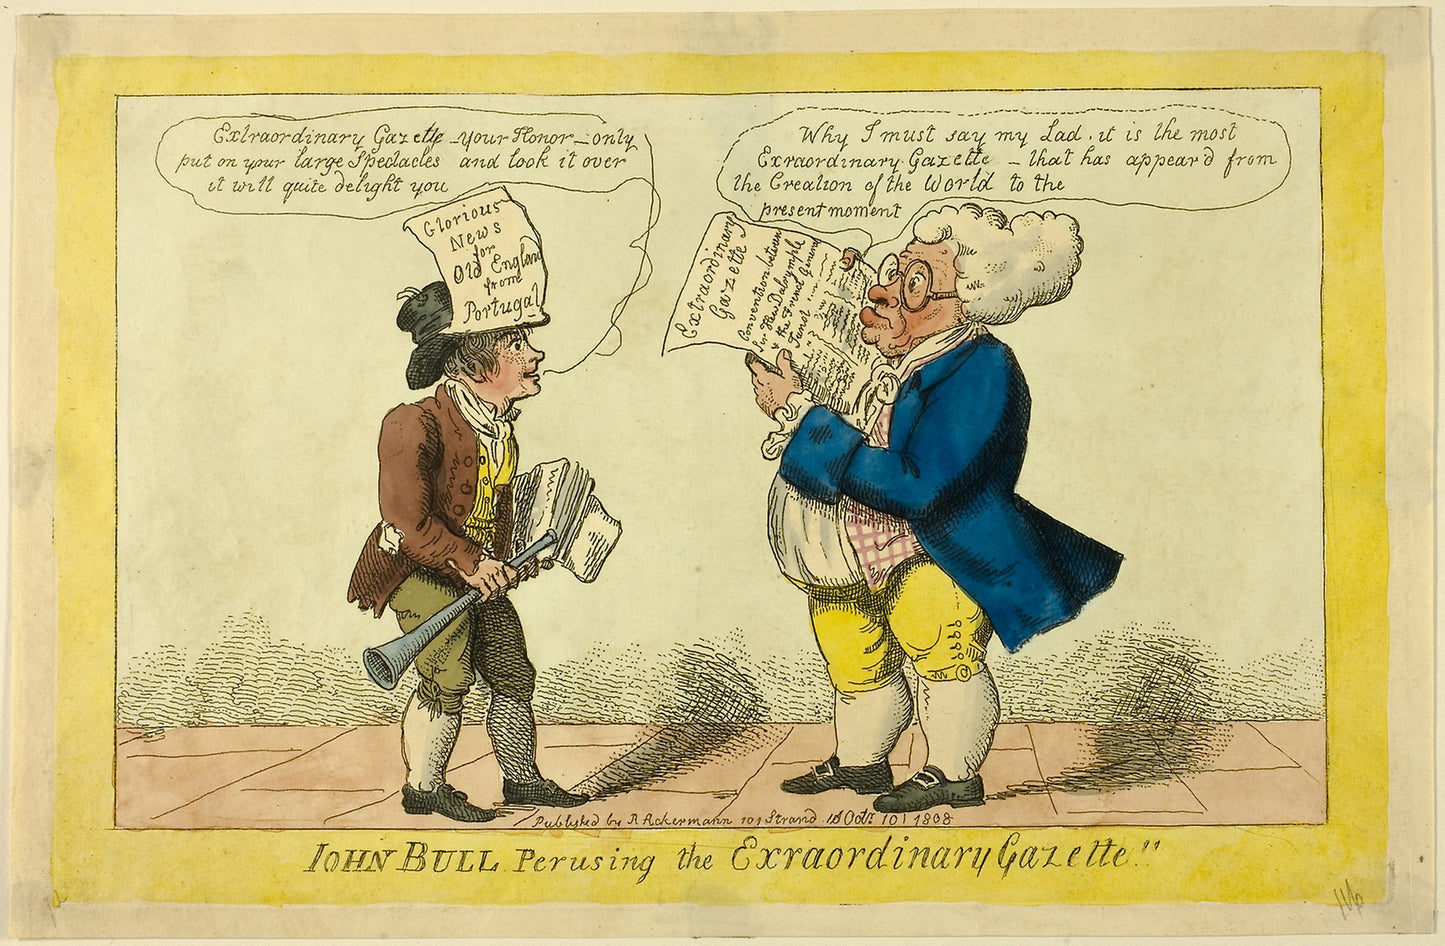 Extraordinary Gazette _ your Honor _ only
put on your large Spectacles and look it over
it will quite delight you
Why I must say my Lad, it is the most
Exraordinary Gazette _ that has appear'd from
the Creation of the World to the
present moment
Glorious
News
for
Old England
from
Portugal
Extraordinary
Gazette
Convention between
Sir Hew Dalrymple
& the Friend General
Junot
Published by R Ackermann 101 Strand Octr 10 1808
IOHN BULL Perusing the Exraordinary Gazette!!